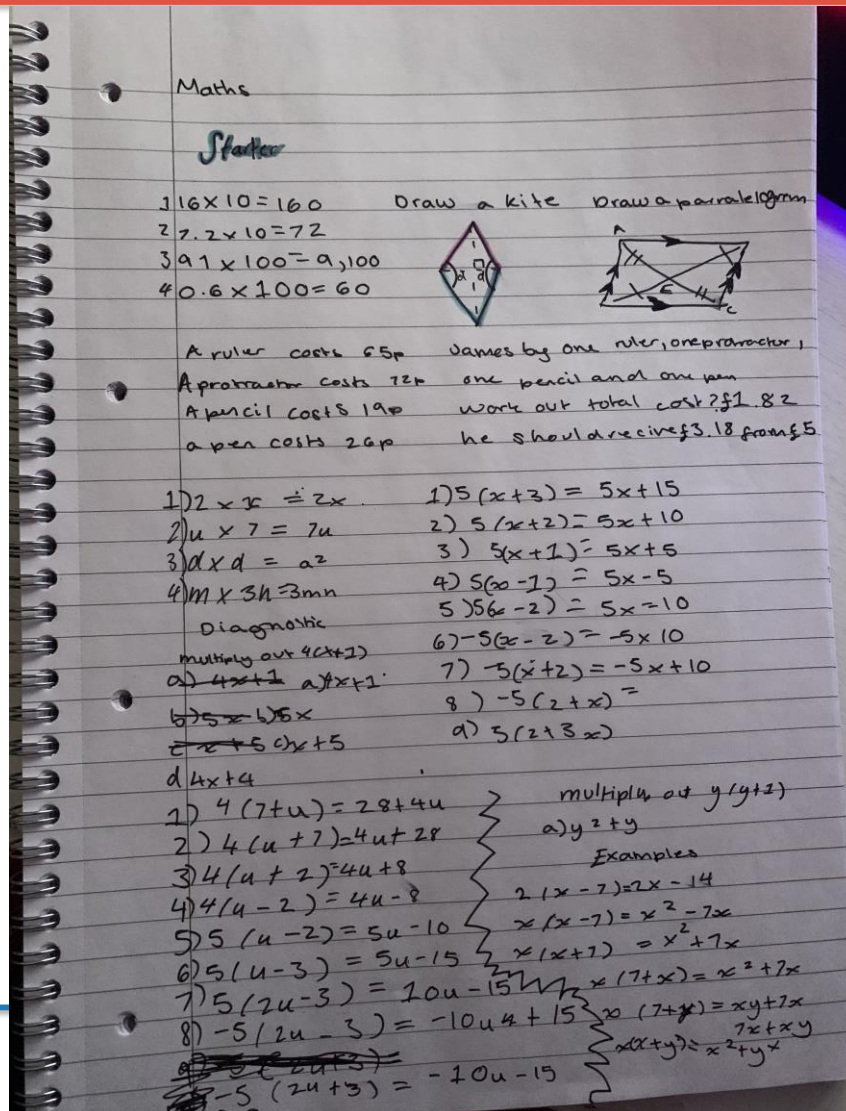 Maths
Starter
1 16 × 10 = 160
2 7.2 × 10 = 72
3 91 × 100 = 9,100
4 0.6 × 100 = 60
Draw a kite
d d
Draw a parralelogram
A
E
C
A ruler costs 65p
A protractor costs 72p
A pencil costs 19p
a pen costs 26p
James by one ruler, one protractor,
one pencil and one pen
work out total cost? £1.82
he should recive £3.18 from £5
1) 2 × x = 2x
2) u × 7 = 7u
3) d × d = a²
4) m × 3n = 3mn
Diagnostic
multiply out 4(x+1)
a) 4x+1 a) 4x+1
b) 5x b) 5x
c x+5 c) x+5
d 4x+4
1) 5(x+3) = 5x+15
2) 5(x+2) = 5x+10
3) 5(x+1) = 5x+5
4) 5(x-1) = 5x-5
5) 5(x-2) = 5x-10
6) -5(x-2) = -5x 10
7) -5(x+2) = -5x+10
8) -5(2+x) =
9) 5(2+3x)
1) 4(7+u) = 28+4u
2) 4(u+7) = 4u+28
3) 4(u+2) = 4u+8
4) 4(u-2) = 4u-8
5) 5(u-2) = 5u-10
6) 5(u-3) = 5u-15
7) 5(2u-3) = 10u-15
8) -5(2u-3) = -10u + 15
-5(2u+3) = -10u-15
multiply out y(y+1)
a) y²+y
Examples
2(x-7) = 2x-14
x(x-7) = x²-7x
x(x+7) = x²+7x
x(7+x) = x²+7x
x(7+y) = xy+7x
7x+xy
x(x+y) = x²+yx